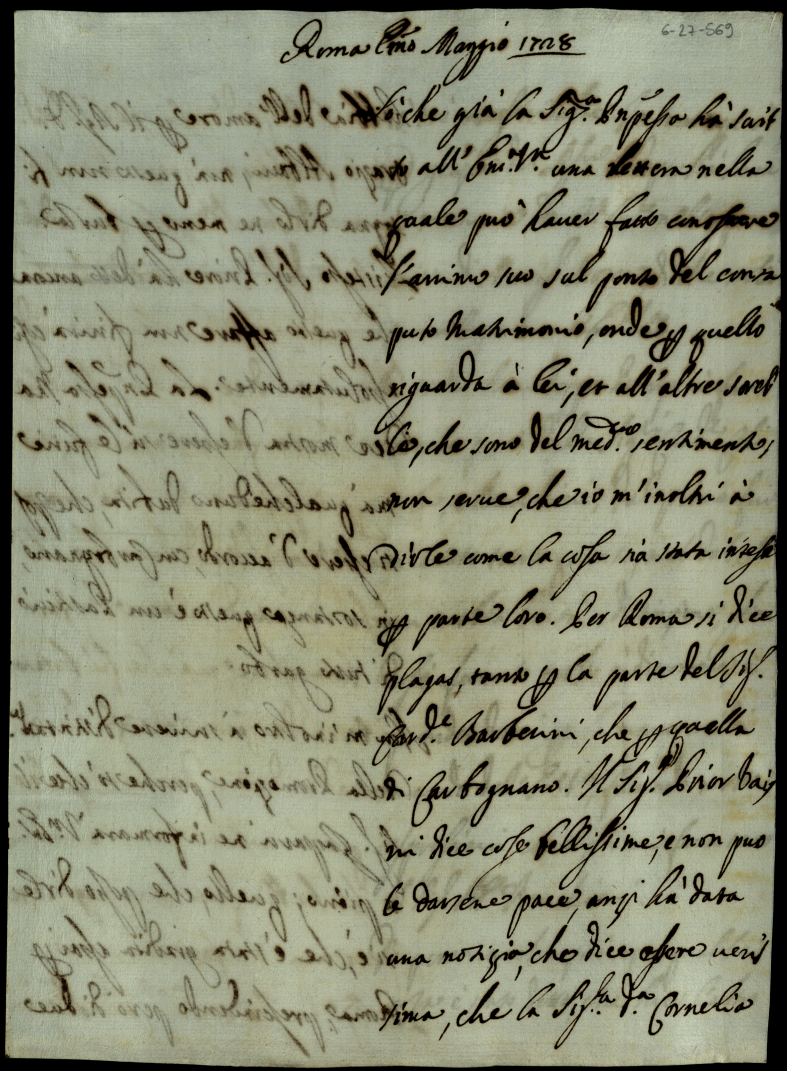 6-27-569
Roma Pmo Maggio 1728
Sò che già la Sig.ra Pnpessa hà scrit
to all' Em.a V.ra una lettera nella
quale può haver fatto conoscere
l'animo suo sul ponto del consa
puto Matrimonio, onde per quello
riguarda à lei, et all' altre sorel
le, che sono del med.o sentimento,
non serve, che io m'inoltri à
dirle come la cosa sia stata intesa
per parte loro. Per Roma si dice
plagas, tanto per la parte del Sig.
Card.e Barberini, che per quella
di Carbognano. Il Sig.r Prior Vai
ni dice cose bellissime, e non puo
le darsene pace, anzi hà data
una notizia, che dice essere veris
sima, che la Sig.ra D.a Cornelia